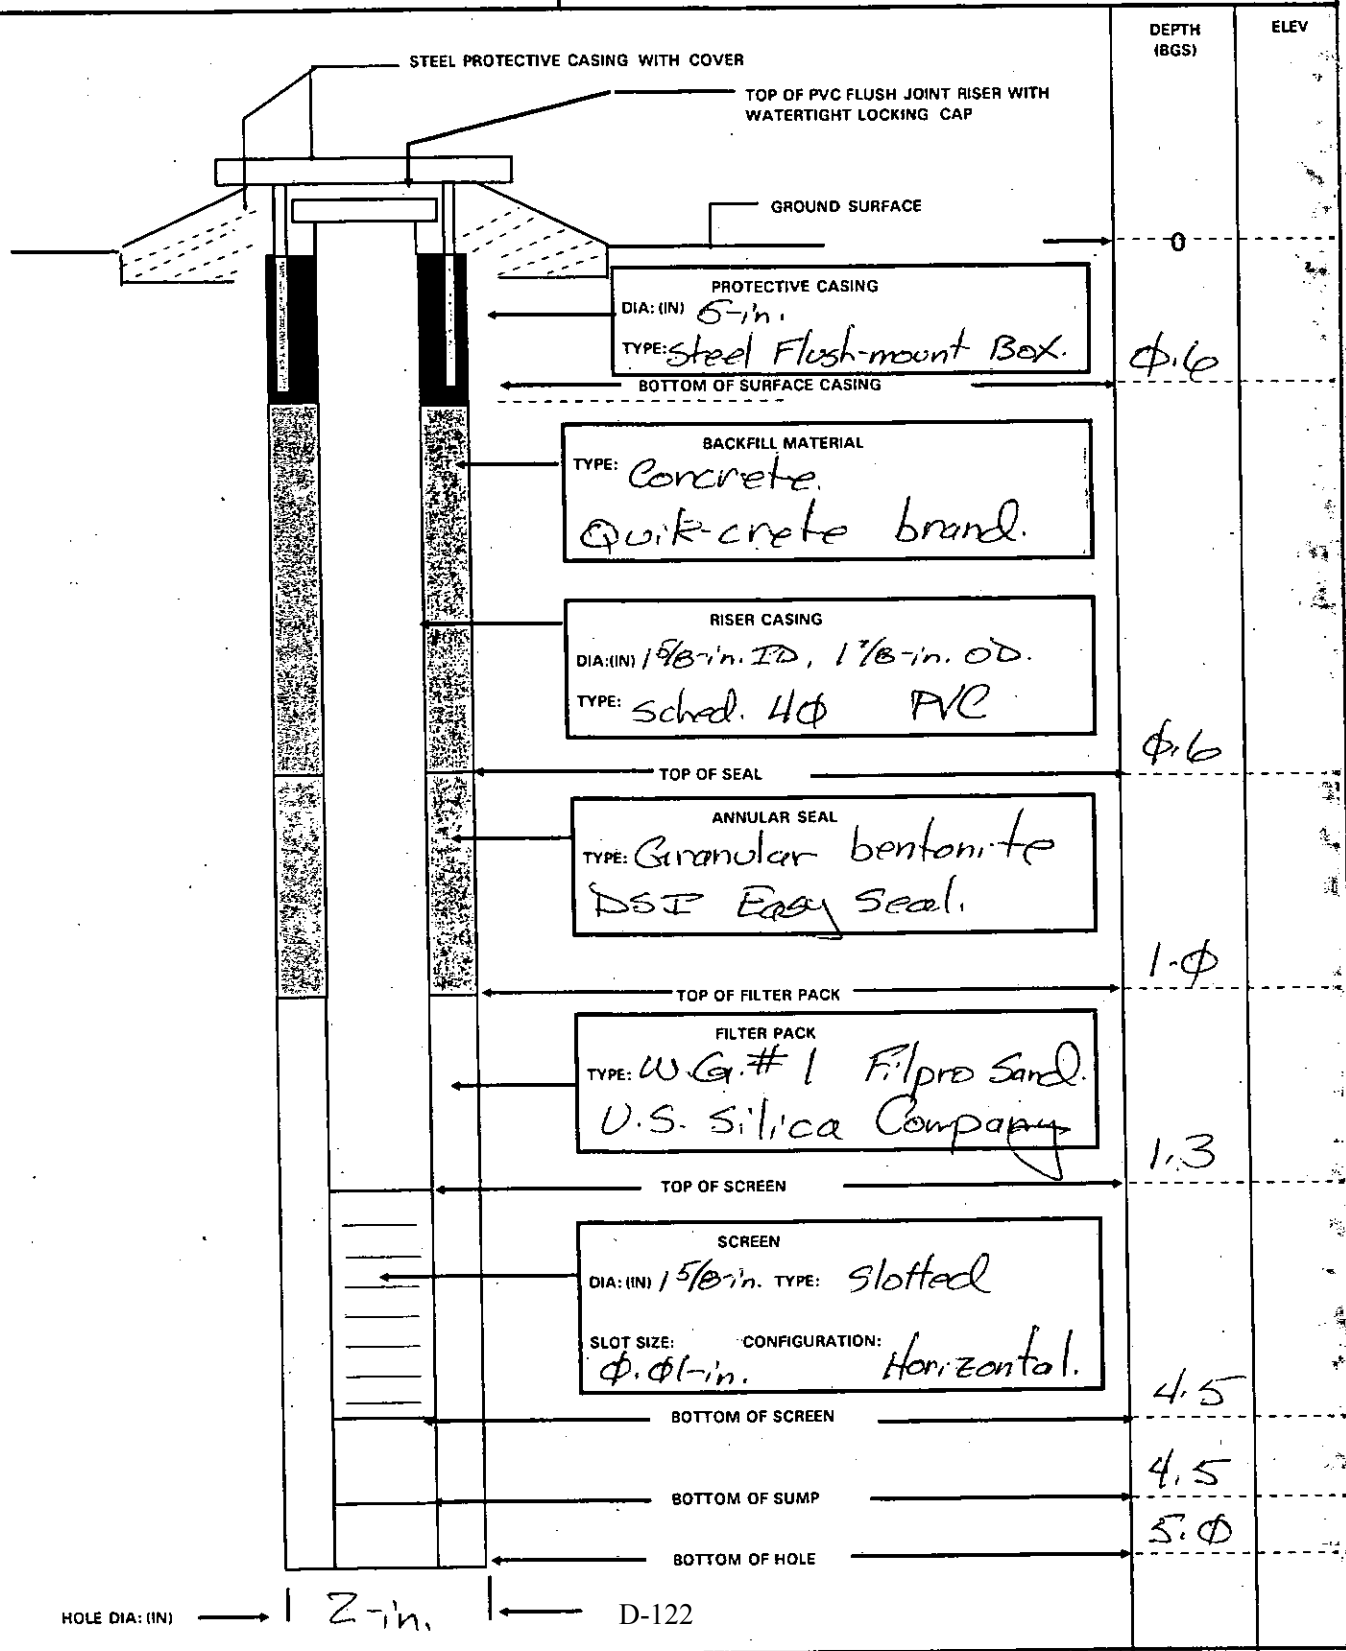 DEPTH
(BGS)
ELEV
STEEL PROTECTIVE CASING WITH COVER
TOP OF PVC FLUSH JOINT RISER WITH
WATERTIGHT LOCKING CAP
GROUND SURFACE
0
PROTECTIVE CASING
DIA: (IN) 5-in.
TYPE: Steel Flush-mount Box.
φ.6
BOTTOM OF SURFACE CASING
BACKFILL MATERIAL
TYPE: Concrete.
Quik-crete brand.
RISER CASING
DIA:(IN) 1 5/8-in. ID, 1 7/8-in. OD.
TYPE: Sched. 4φ PVC
φ.6
TOP OF SEAL
ANNULAR SEAL
TYPE: Granular bentonite
DSI Easy Seal.
1.φ
TOP OF FILTER PACK
FILTER PACK
TYPE: W.G. #1 Filpro Sand.
U.S. Silica Company
1.3
TOP OF SCREEN
SCREEN
DIA: (IN) 1 5/8-in. TYPE: Slotted
SLOT SIZE: CONFIGURATION:
φ.φ1-in. Horizontal.
4.5
BOTTOM OF SCREEN
4.5
BOTTOM OF SUMP
5.φ
BOTTOM OF HOLE
HOLE DIA: (IN) 2-in. D-122